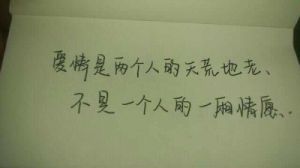 爱情是两个人的天荒地老、
不是一个人的一厢情愿、